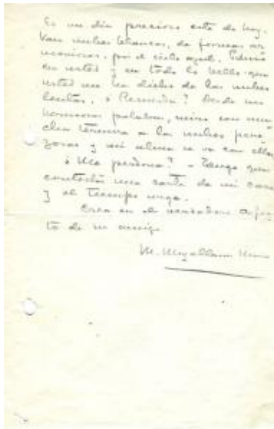 Es un día precioso este de hoy.
Van nubes blancas, de formas ar
moniosas, por el cielo azul. Pienso
en usted y en todo lo bello que
usted me ha dicho de las nubes
lentas. ¿Recuerda? Desde sus
hermosas palabras, miro con mu
cha ternura a las nubes pere
zosas y mi alma se va con ellas
¿Me perdona? - Tengo que
contestar una carta de mi casa
y el tiempo urge.
Crea en el verdadero afec
to de su amigo
M. Magallanes Moure